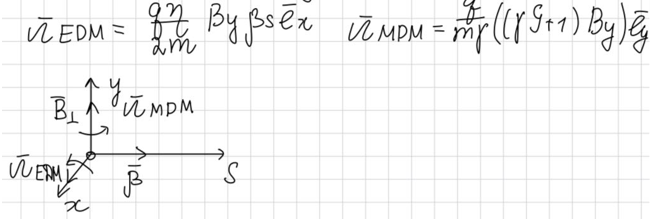 Ω̄ EDM = qη/2m By βs ēx   Ω̄ MDM = q/mγ ((γG+1) By) ēy
y
B̄⊥ Ω̄ MDM
Ω̄ EDM β̄ S
x